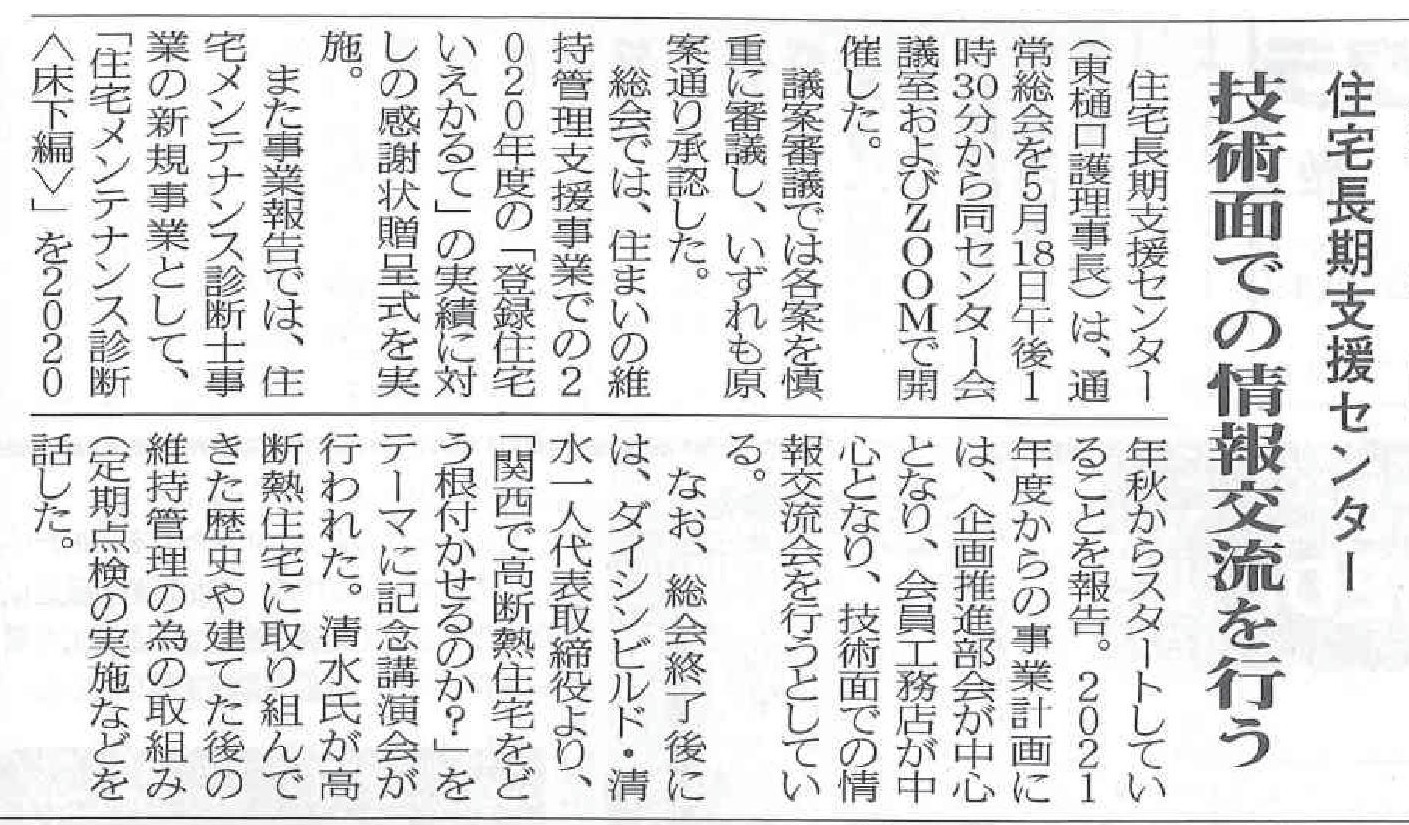 住宅長期支援センター
技術面での情報交流を行う
住宅長期支援センター
（東樋口護理事長）は、通
常総会を5月18日午後1
時30分から同センター会
議室およびＺＯＯＭで開
催した。
議案審議では各案を慎
重に審議し、いずれも原
案通り承認した。
総会では、住まいの維
持管理支援事業での2
020年度の「登録住宅
いえかるて」の実績に対
しの感謝状贈呈式を実
施。
また事業報告では、住
宅メンテナンス診断士事
業の新規事業として、
「住宅メンテナンス診断
〈床下編〉」を2020
年秋からスタートしてい
ることを報告。2021
年度からの事業計画に
は、企画推進部会が中心
となり、会員工務店が中
心となり、技術面での情
報交流会を行うとしてい
る。
なお、総会終了後に
は、ダイシンビルド・清
水一人代表取締役より、
「関西で高断熱住宅をど
う根付かせるのか？」を
テーマに記念講演会が
行われた。清水氏が高
断熱住宅に取り組んで
きた歴史や建てた後の
維持管理の為の取組み
（定期点検の実施などを
話した。